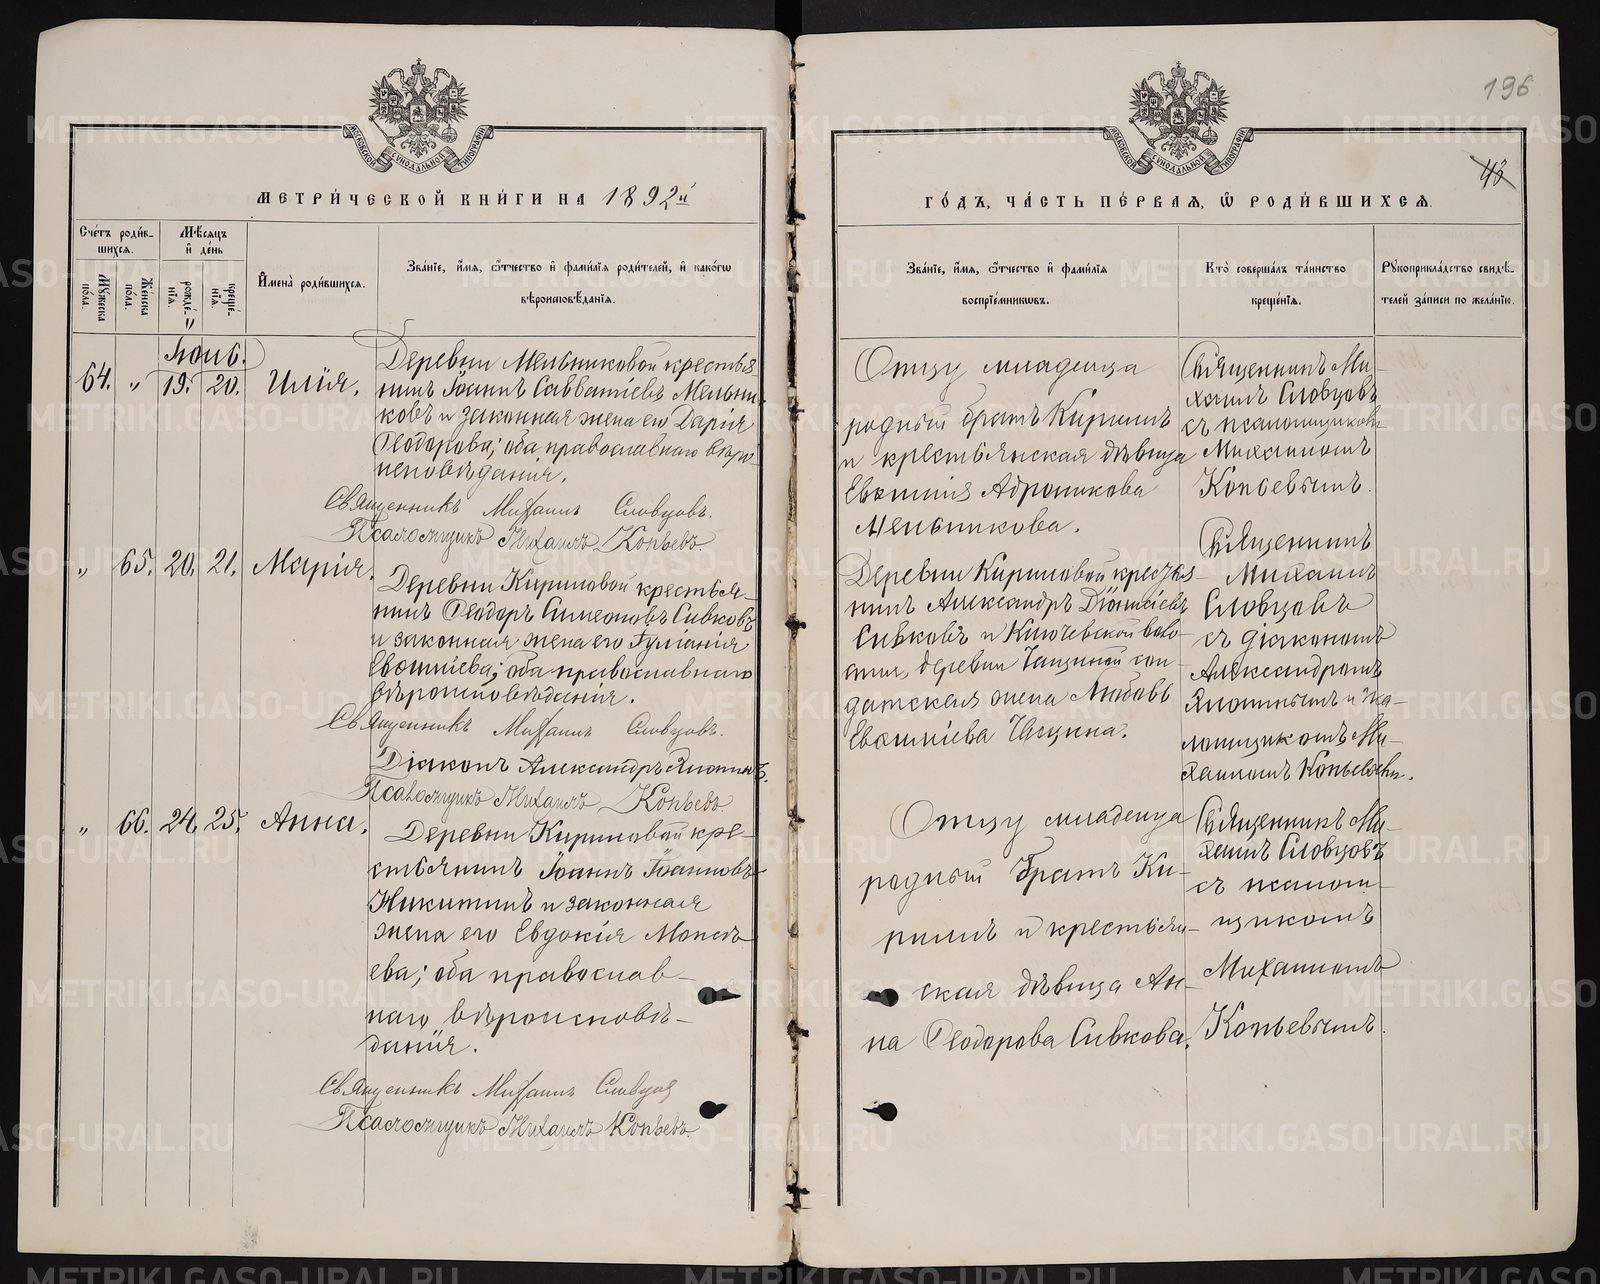 МЕТРИ́ЧЕСКОЙ КНИ́ГИ НА 1892й
Сче́тъ роди́в-
шихся.
Мѣ́сяцъ
и҆ де́нь
Мꙋжеска
пола.
Женска
пола.
рожде́-
нїѧ.
креще́-
нїѧ.
И҆мена̀ роди́вшихсѧ.
Зва́нїе, и҆́мѧ, ѻ҆́тчество и҆ фамі́лїѧ роди́телей, и҆ како́гѡ
вѣроисповѣ́данїѧ.
64. „ 19. 20. Илія.
Деревни Мельниковой крестья
нинъ Іоаннъ Савватіевъ Мельни-
ковъ и законная жена его Дарія
Ѳеодорова; оба православнаго вѣро-
исповѣданія.
Священникъ Михаилъ Словцовъ.
Псаломщикъ Михаилъ Копьевъ.
„ 65. 20. 21. Марія.
Деревни Кириловой крестья-
нинъ Ѳеодоръ Симеоновъ Сивковъ
и законная жена его Іуліанія
Евѳиміева; оба православнаго
вѣроисповѣданія.
Священникъ Михаилъ Словцовъ.
Діаконъ Александръ
Псаломщикъ Михаилъ Копьевъ
„ 66. 24. 25. Анна.
Деревни Кириловой кре-
стьянинъ Іоаннъ Іоанновъ
Никитинъ и законная
жена его Евдокія Моисѣ-
ева; оба православ-
наго вѣроисповѣ-
данія.
Священникъ Михаилъ Словцовъ
Псаломщикъ Михаилъ Копьевъ.
196
43
ГО́ДЪ, ЧА́СТЬ ПЕ́РВАѦ, Ѽ РОДИ́ВШИХСѦ.
Зва́нїе, и҆́мѧ, ѻ҆́тчество и҆ фамі́лїѧ
воспрїе́мникѡвъ.
Кто̀ соверша́лъ та́инство
креще́нїѧ.
Рꙋкоприкла́дство свидѣ́-
телей за́писи по жела́нїю.
Отцу младенца
родный братъ Кириллъ
и крестьянская дѣвица
Евѳимія Адроникова
Мельникова.
Священникъ Ми-
хаилъ Словцовъ
съ псаломщикомъ
Михаиломъ
Копьевымъ.
Деревни Кириловой крестья-
нинъ Александръ Діонисіевъ
Сивковъ и Ключевской воло-
сти, деревни Чащиной сол-
датская жена Любовь
Евѳиміева Чащина.
Священникъ
Михаилъ
Словцовъ
съ діакономъ
Александромъ
и пса-
ломщикомъ Ми-
хаиломъ Копьевымъ.
Отцу младенца
родный братъ Ки-
рилъ и крестьян-
ская дѣвица Ан-
на Ѳеодорова Сивкова.
Священникъ Ми-
хаилъ Словцовъ
съ псалом-
щикомъ
Михаиломъ
Копьевымъ.
METRIKI.GASO-URAL.RU